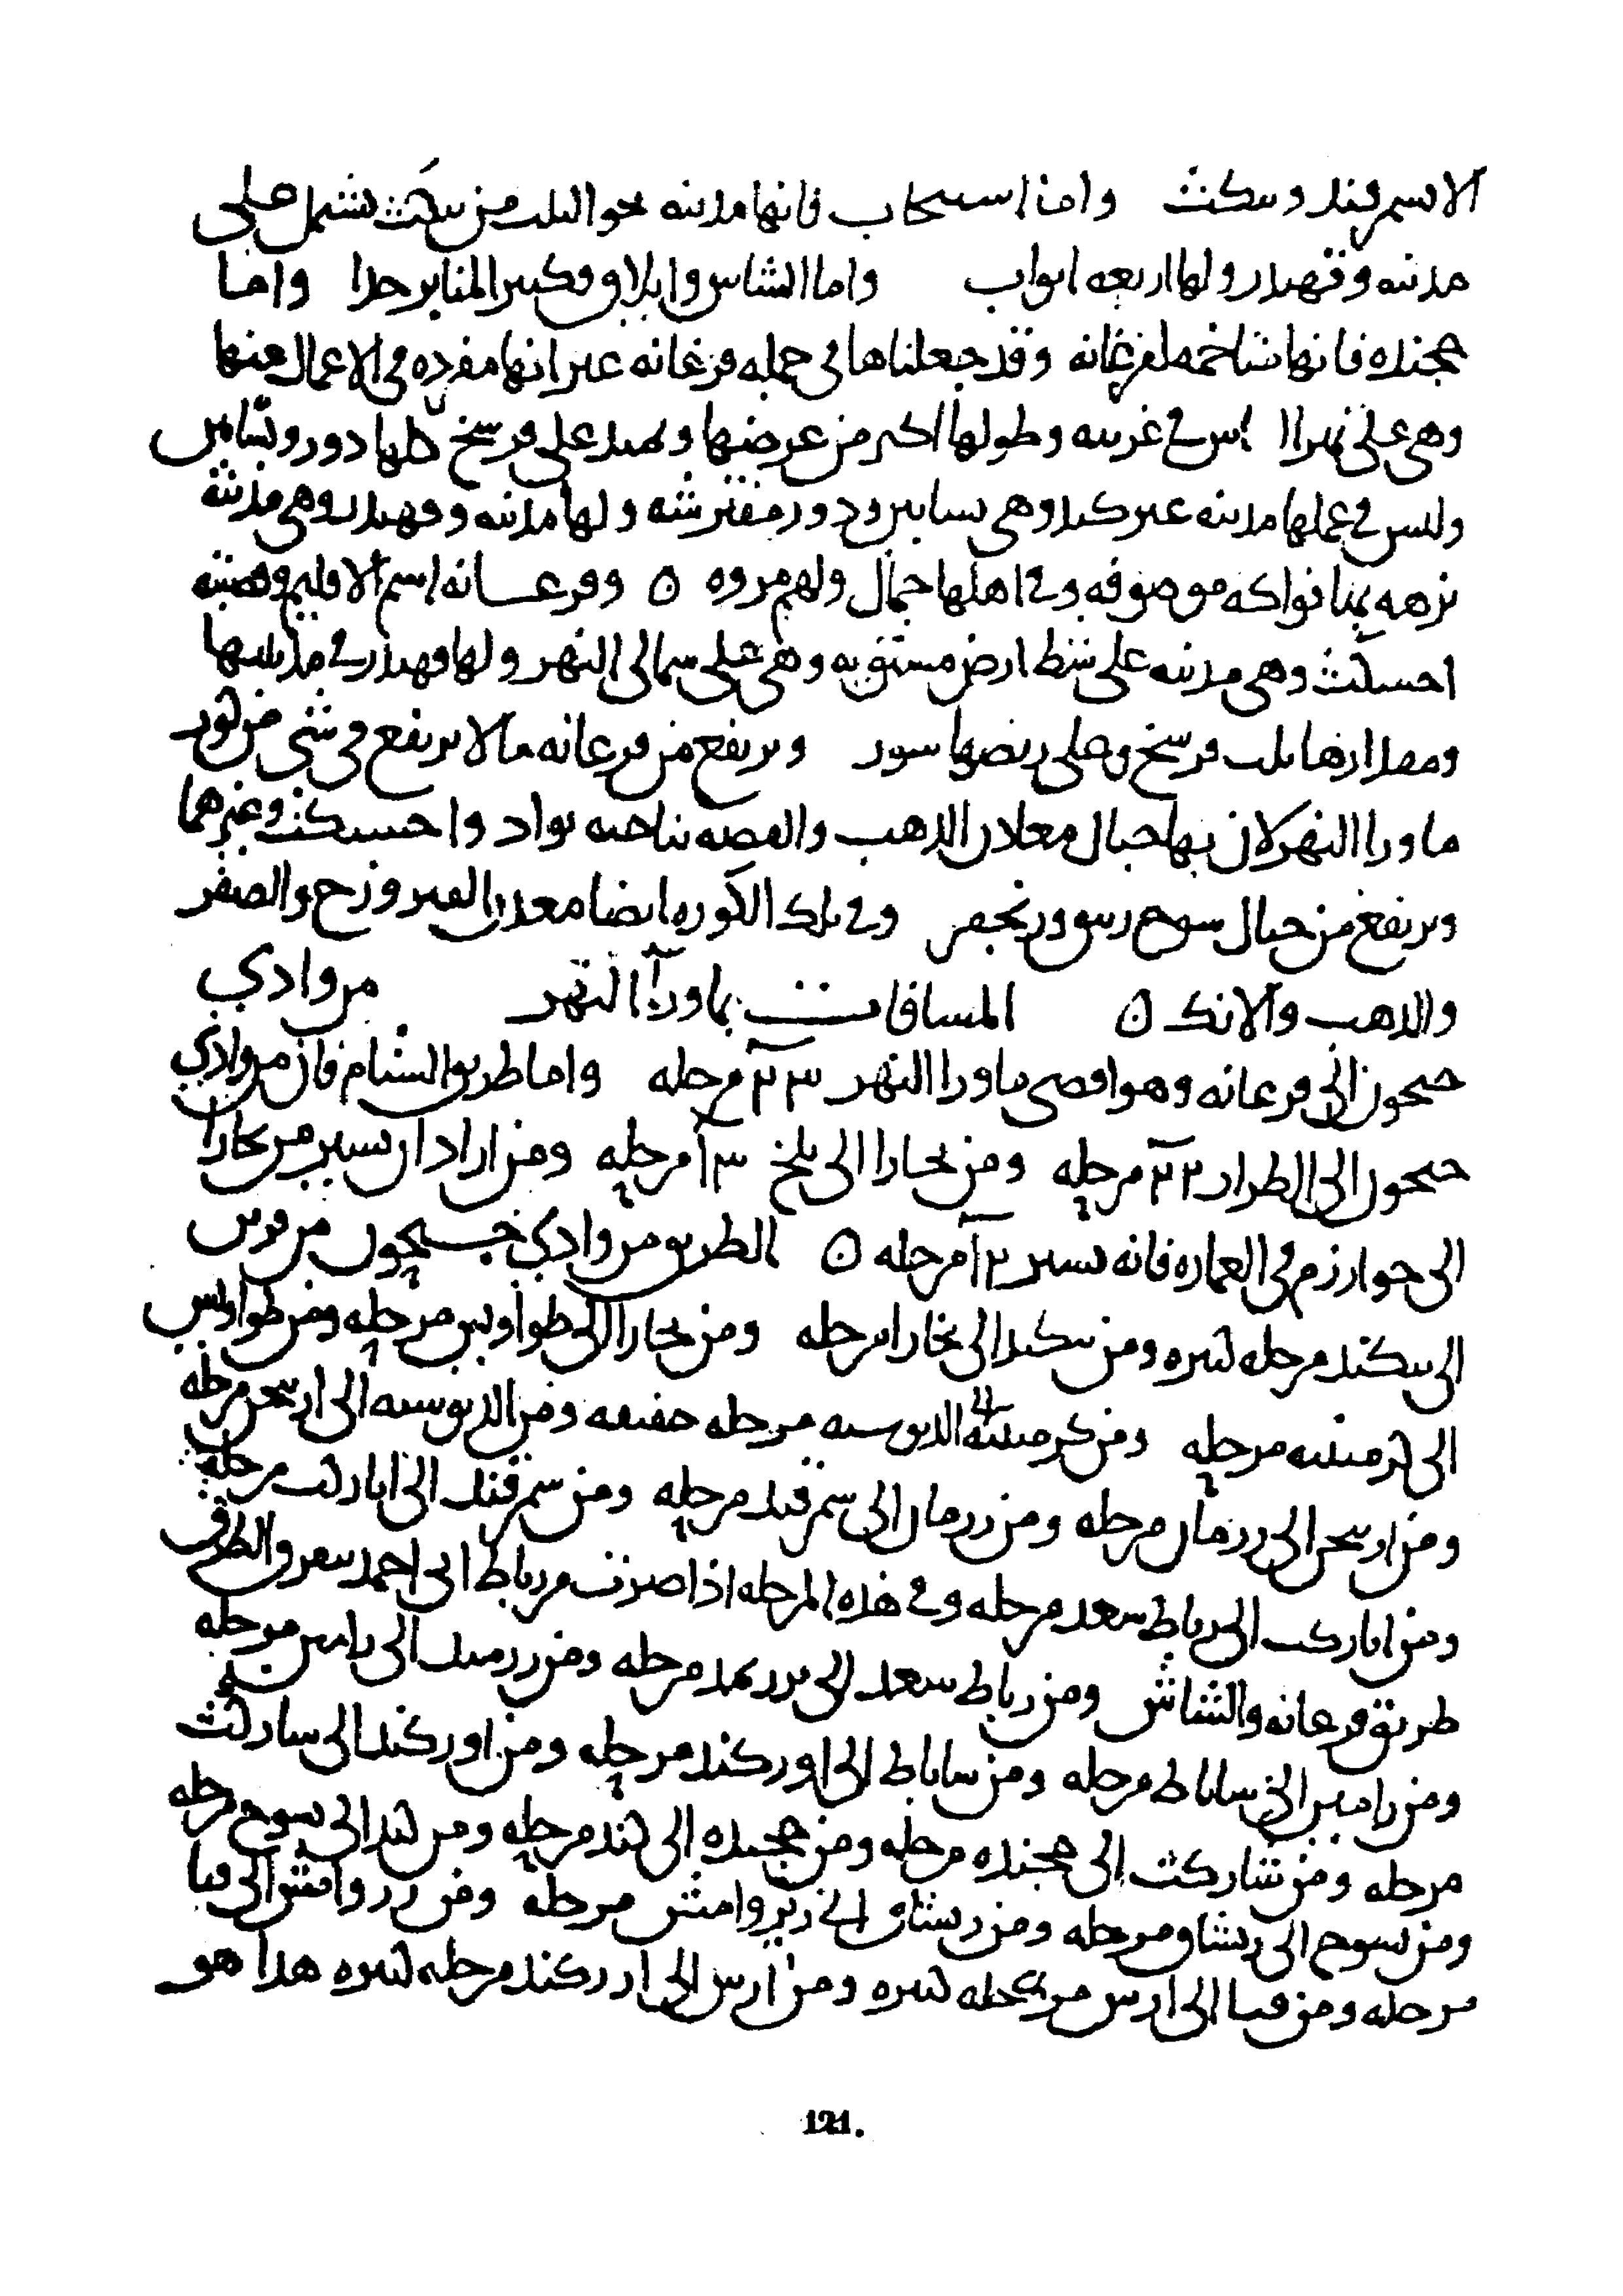 الا بسمرقند وبنكث واما اسبيجاب فانها مدينه نحو الثلث من بنكث تشتمل على
مدينه وقهندز ولها اربعه ابواب واما الشاش وايلاق فكثير المنابر جدا واما
خجنده فانها متاخمه لفرغانه وقد جعلناها في جمله فرغانه غير انها مفرده في الاعمال عنها
وهي على نهر الشاس في غربيه وطولها اكبر من عرضها ويمتد على فرسخ كلها دور وبساتين
وليس في عملها مدينه غير كند وهي بساتين ودور مفترشه ولها مدينه وقهندز وهي مدينه
نزهه بها فواكه موصوفه وفي اهلها جمال ولهم مروه ٥ وفرغانه اسم الاقليم وقصبته
اخسيكث وهي مدينه على شط ارض مستويه وهي على شمالي النهر ولها قهندز في مدينتها
ومقدارها ثلث فرسخ وعلى ربضها سور ويرتفع من فرغانه ما لا يرتفع في شي من كور
ما ورا النهر لان بها جبال معادن الذهب والفضه بناحيه نواد واخسيكث وغيرهما
ويرتفع من جبال سوخ زيبق وفي تلك الكوره ايضا معدن الفيروزج والصفر
والذهب والانك ٥ المسافات بما ورآ النهر من وادي
جيحون الى فرغانه وهو اقصى ماورا النهر ٢٣ مرحله واما طريق الشام فان من وادي
جيحون الى الطراز ٢٢ مرحله ومن بخارا الى بلخ ١٣ مرحله ومن اراد ان يسير من بخارا
الى خوارزم في العماره فانه يسير ١٢ مرحله ٥ الطريق من وادي جيحون من فربر
الى بيكند مرحله كبيره ومن بيكند الى بخارا مرحله ومن بخارا الى طواويس مرحله ومن طواويس
الى كرمينيه مرحله ومن كرمينيه الى الدبوسيه مرحله خفيفه ومن الدبوسيه الى اربنجن مرحله
ومن اربنجن الى زرمان مرحله ومن زرمان الى سمرقند مرحله ومن سمرقند الى اباركث مرحله
ومن اباركث الى رباط سعد مرحله وفي هذه المرحله اذا صرت من رباط ابي احمد يتفرق الطرق
طريق فرغانه والشاش ومن رباط سعد الى بورنمد مرحله ومن زرمند الى زامين مرحله
ومن زامين الى ساباط مرحله ومن ساباط الى اوركند مرحله ومن اوركند الى شاركث
مرحله ومن شاركث الى خجنده مرحله ومن خجنده الى كند مرحله ومن كند الى سوخ مرحله
ومن سوخ الى رشتاق مرحله ومن رشتاق الى زندرامش مرحله ومن زندرامش الى قبا
مرحله ومن قبا الى اوش مرحله كبيره ومن اوش الى اوزكند مرحله كبيره هذا هو
121.